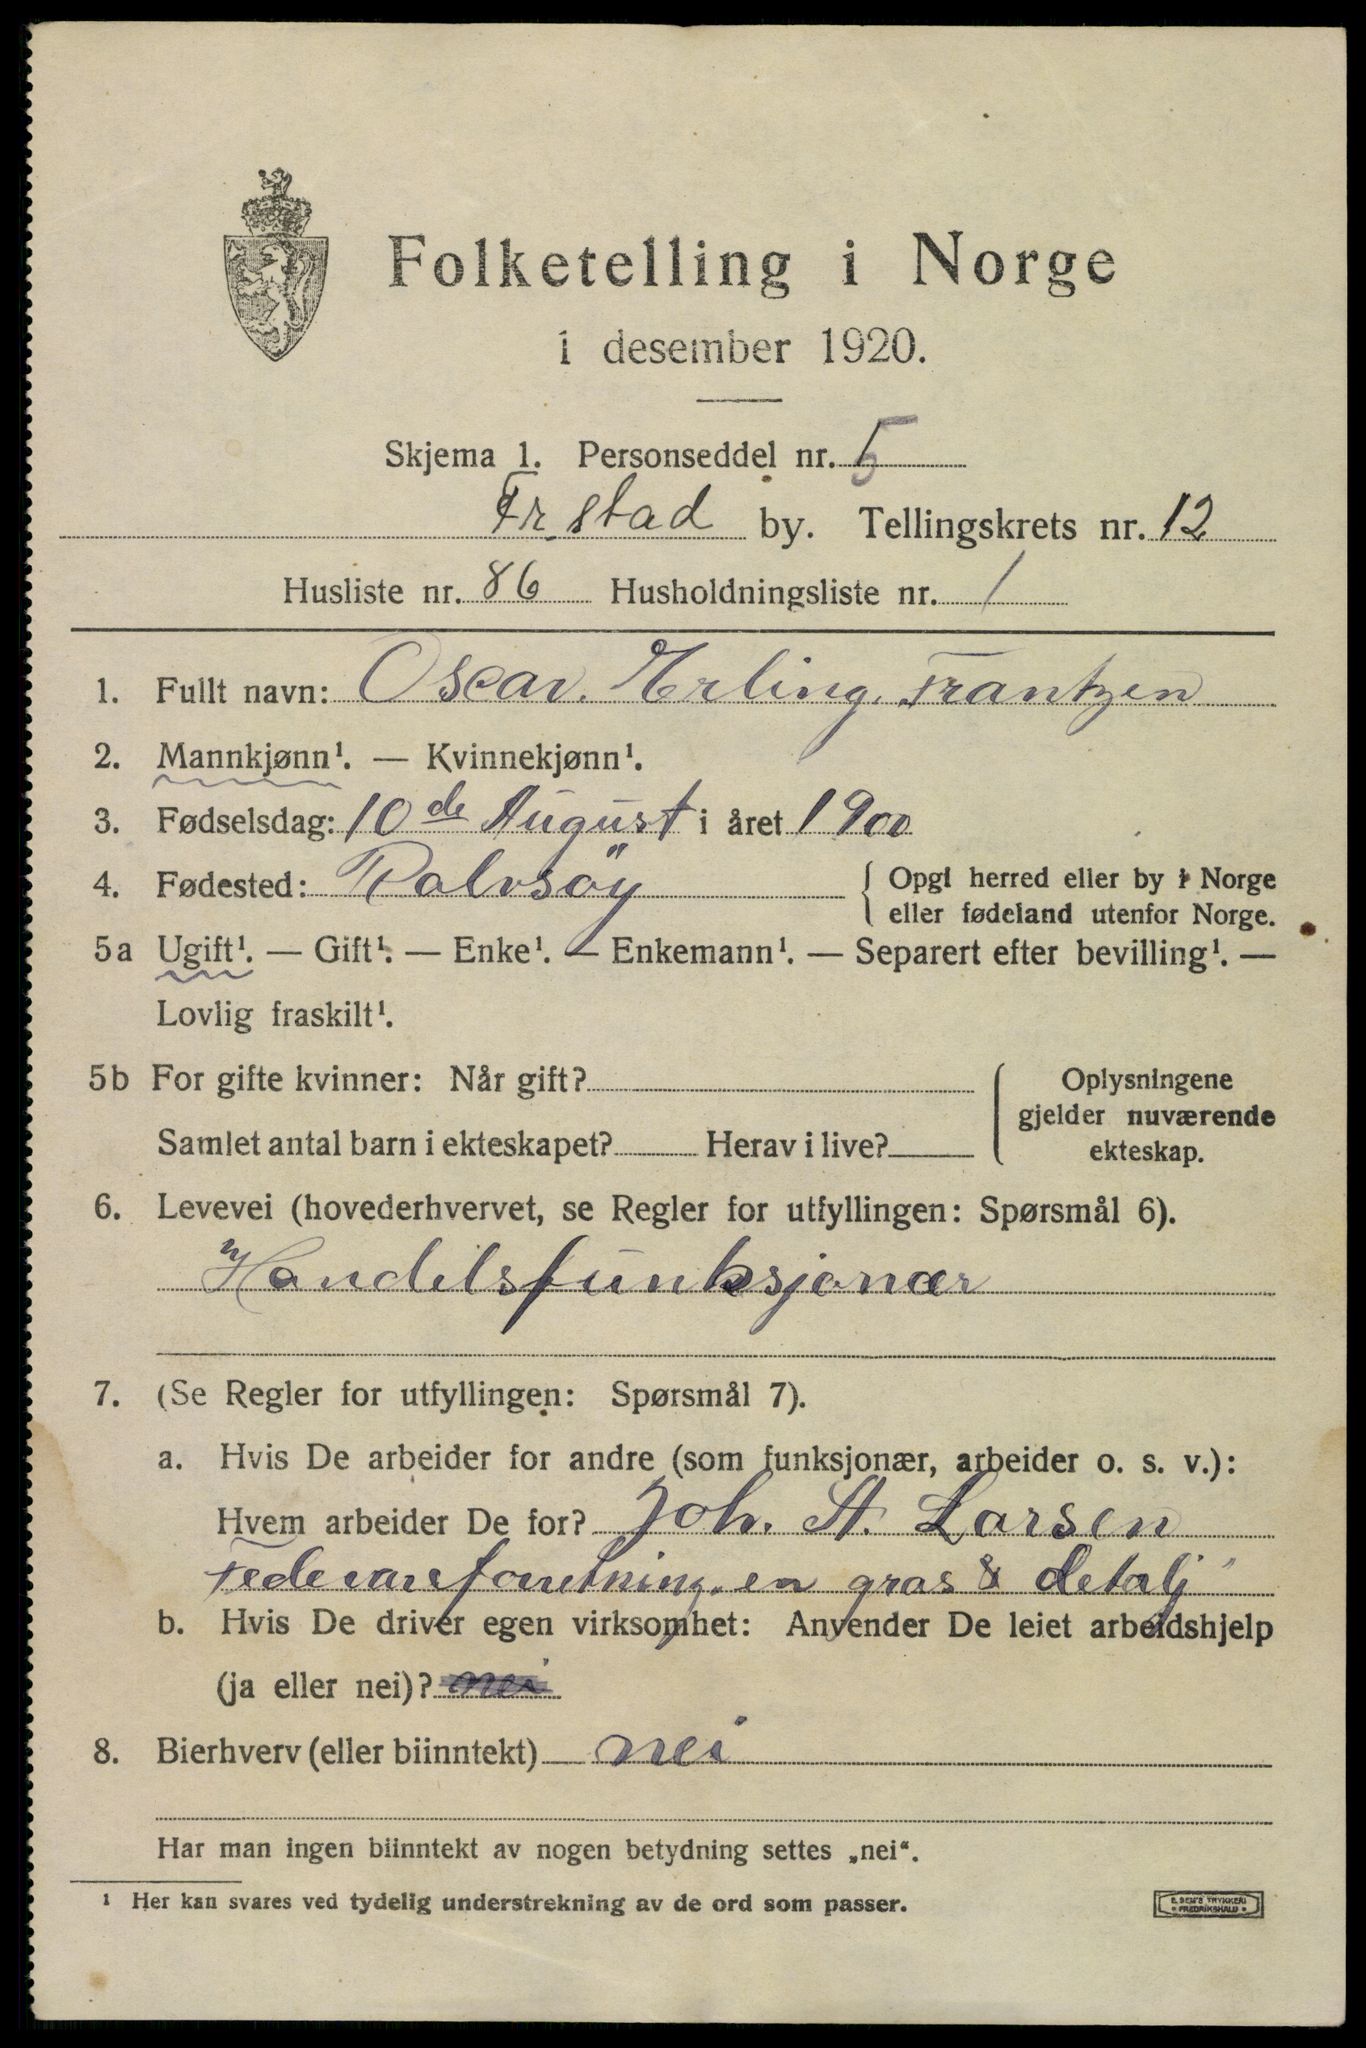 Folketelling i Norge
i desember 1920.
Skjema 1. Personseddel nr. 5
Fr.stad by. Tellingskrets nr. 12
Husliste nr. 86 Husholdningsliste nr. 1
1. Fullt navn: Oscar. Erling. Frantzen
2. Mannkjønn¹. — Kvinnekjønn¹.
3. Fødselsdag: 10de August i året 1900
4. Fødested: Rolvsöy { Opgi herred eller by i Norge
eller fødeland utenfor Norge.
5a Ugift¹. — Gift¹. — Enke¹. — Enkemann¹. — Separert efter bevilling¹. —
Lovlig fraskilt¹.
5b For gifte kvinner: Når gift? { Oplysningene
gjelder nuværende
Samlet antal barn i ekteskapet? Herav i live? ekteskap.
6. Levevei (hovederhvervet, se Regler for utfyllingen: Spørsmål 6).
Handelsfunksjonær
7. (Se Regler for utfyllingen: Spørsmål 7).
a. Hvis De arbeider for andre (som funksjonær, arbeider o. s. v.):
Hvem arbeider De for? Joh. A. Larsen
Fedevareforretning. en gros & detalj
b. Hvis De driver egen virksomhet: Anvender De leiet arbeidshjelp
(ja eller nei)? nei
8. Bierhverv (eller biinntekt) nei
Har man ingen biinntekt av nogen betydning settes „nei“.
¹ Her kan svares ved tydelig understrekning av de ord som passer.
E. SEM'S TRYKKERI
FREDRIKSHALD